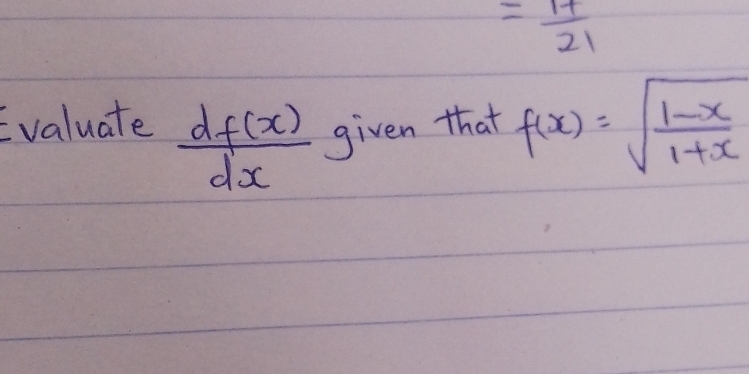 = 17/21
Evaluate df(x)/dx given that f(x) = √((1-x)/(1+x))